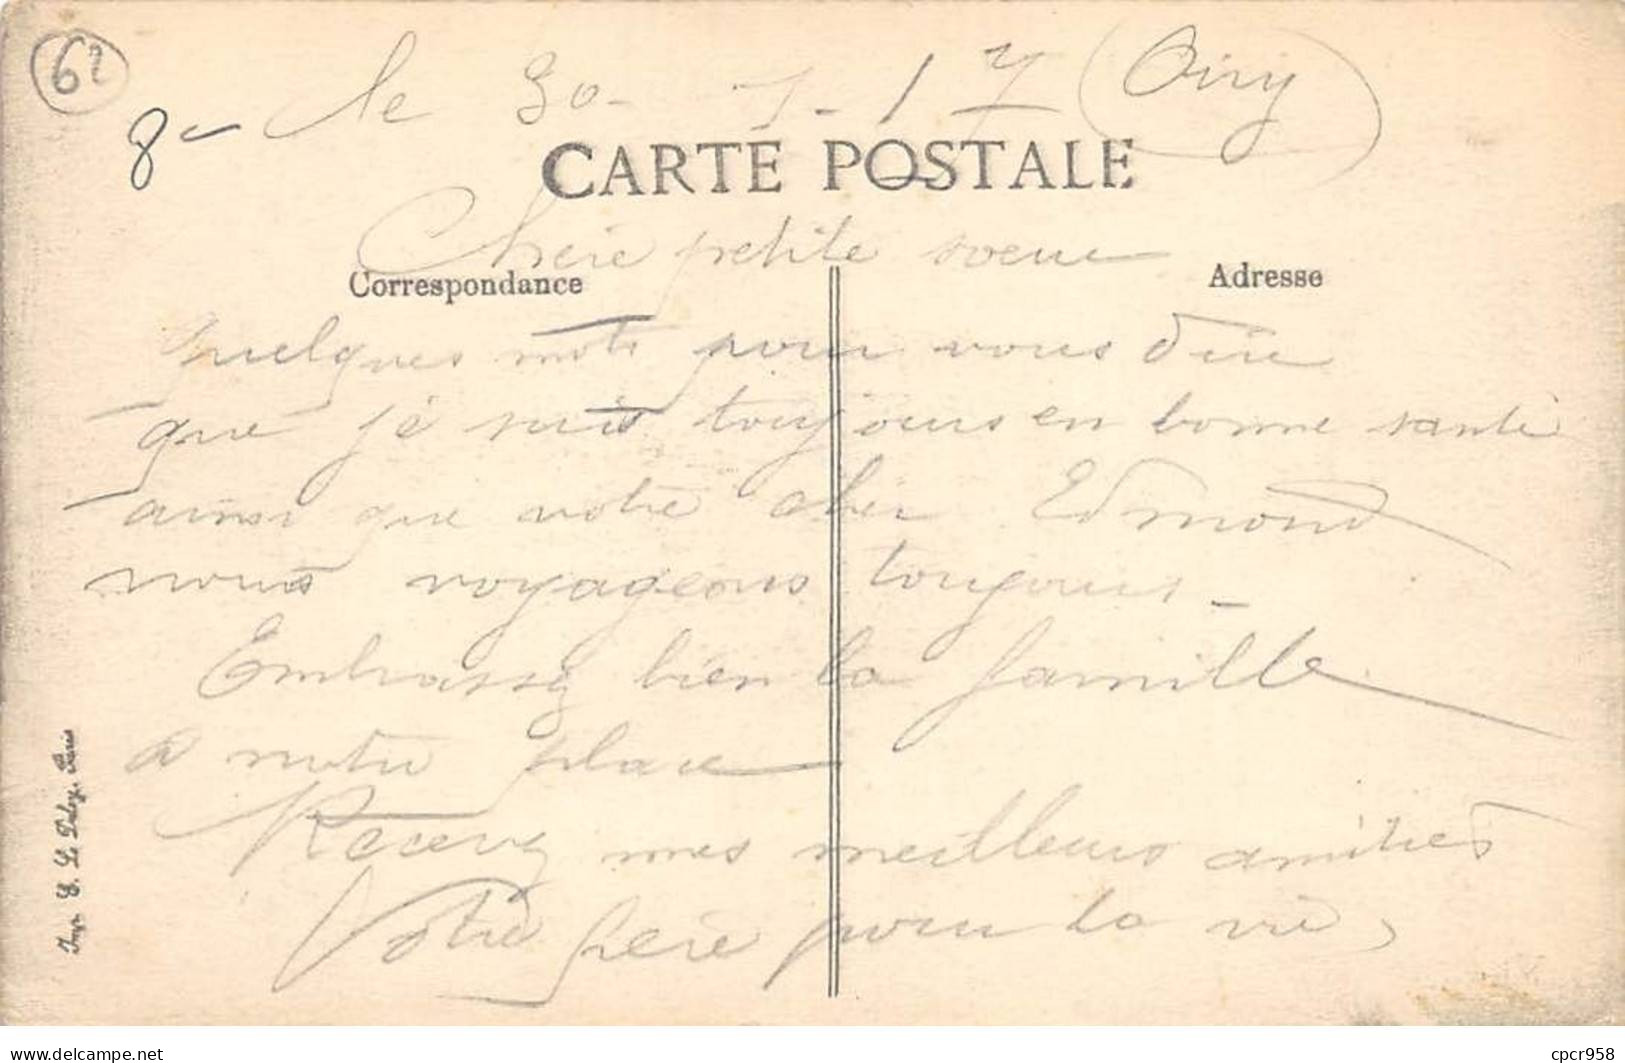 62
8- le 30-1-17 (Oiry)
CARTE POSTALE
Chère petite soeur
Correspondance
Adresse
quelques mots pour vous dire
que je suis toujours en bonne santé
ainsi que votre cher Edmond
nous voyageons toujours-
Embrassez bien la famille
a notre place
Recevez mes meilleurs amitiés
Votre frère pour la vie,
Imp. E. Le Deley, Paris
delcampe.net
cpcr958